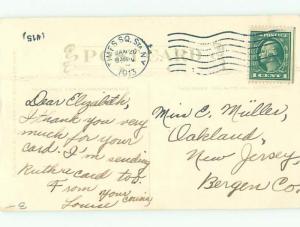 (1415)
POST CARD
TIMES SQ. STA. N.Y.
JAN 20
1913
1 CENT 1
Dear Elizabeth,
I thank you very
much for your
card. I'm sending
Ruth a card too.
From your cousin,
Louise
Miss E. Müller,
Oakland,
New Jersey,
Bergen Co.